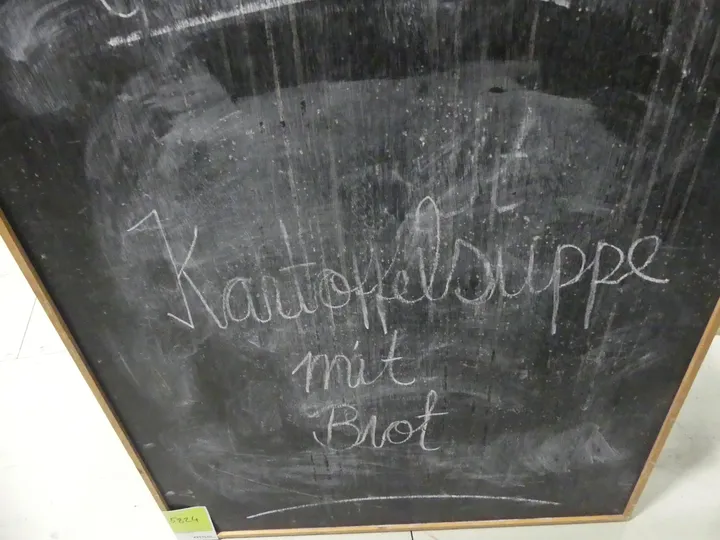 Kartoffelsuppe
mit
Brot